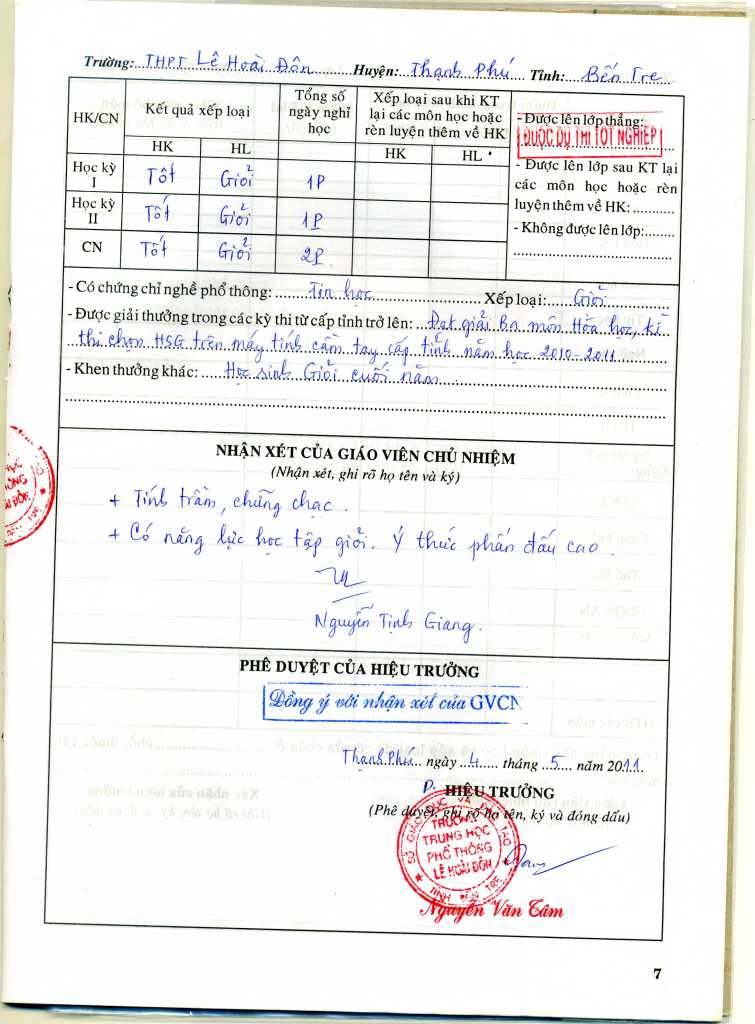 Trường: THPT Lê Hoài Đôn Huyện: Thạnh Phú Tỉnh: Bến Tre
HK/CN Kết quả xếp loại Tổng số ngày nghỉ học Xếp loại sau khi KT lại các môn học hoặc rèn luyện thêm về HK
HK HL HK HL
- Được lên lớp thẳng:
ĐƯỢC DỰ THI TỐT NGHIỆP
- Được lên lớp sau KT lại
các môn học hoặc rèn
luyện thêm về HK: ...........
- Không được lên lớp:........
Học kỳ I Tốt Giỏi 1P
Học kỳ II Tốt Giỏi 1P
CN Tốt Giỏi 2P
- Có chứng chỉ nghề phổ thông: Tin học Xếp loại: Giỏi
- Được giải thưởng trong các kỳ thi từ cấp tỉnh trở lên: Đạt giải Ba môn Hóa học, kì
thi chọn HSG trên máy tính cầm tay cấp tỉnh năm học 2010-2011
- Khen thưởng khác: Học sinh Giỏi cuối năm
NHẬN XÉT CỦA GIÁO VIÊN CHỦ NHIỆM
(Nhận xét, ghi rõ họ tên và ký)
+ Tính trầm, chững chạc.
+ Có năng lực học tập giỏi. Ý thức phấn đấu cao.
Nguyễn Tịnh Giang.
PHÊ DUYỆT CỦA HIỆU TRƯỞNG
Đồng ý với nhận xét của GVCN
Thạnh Phú, ngày 4 tháng 5 năm 2011
P. HIỆU TRƯỞNG
(Phê duyệt, ghi rõ họ tên, ký và đóng dấu)
SỞ GIÁO DỤC VÀ ĐÀO TẠO
TRƯỜNG
TRUNG HỌC
PHỔ THÔNG
LÊ HOÀI ĐÔN
TỈNH BẾN TRE
Nguyễn Văn Tâm
7